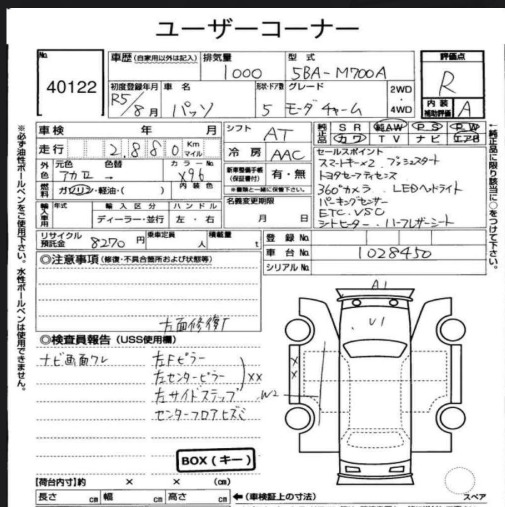 ユーザーコーナー
No.
40122
車歴 (自家用以外は記入)
排気量
1000
型式
5BA-M700A
評価点
R
初度登録年月
R5/8月
車名
パッソ
形状・ドア数
5
グレード
モーダ チャーム
2WD
4WD
内装
補助評価
A
※必ず油性ボールペンをご使用下さい。水性ボールペンは使用できません。
車検 年 月
走行 2880 Km マイル
シフト
AT
純正品 SR 純AW PS PW
カワ TV ナビ エアB
↑純正品に限り該当に○をつけて下さい。
外色
元色
アカII
色替
→
カラーNo.
X96
冷房
AAC
燃料
ガソリン・軽油・( )
内装色
新車整備手帳
(保証書付)
有・無
※書類と一緒に保管下さい。
セールスポイント
スマートキー×2. プッシュスタート
トヨタセーフティセンス
360°カメラ. LEDヘッドライト
パーキングセンサー
ETC. VSC
シートヒーター. ハーフレザーシート
輸入車用
年式
輸入区分
ディーラー・並行
ハンドル
左・右
名義変更期限
月 日
リサイクル
預託金
8270 円
乗車定員
人
積載量
t
登録No.
車台No.
1028450
シリアルNo.
◎注意事項 (修復・不具合箇所および状態等)
◎検査員報告 (USS使用欄)
ナビ画面ワレ
左Fピラー
左センターピラー
左サイドステップ
××
センターフロアヒズミ
BOX (キー)
A1
U1
××
W2
【荷台内寸】約 × × (cm)
長さ cm 幅 cm 高さ cm
←(車検証上の寸法)
スペア